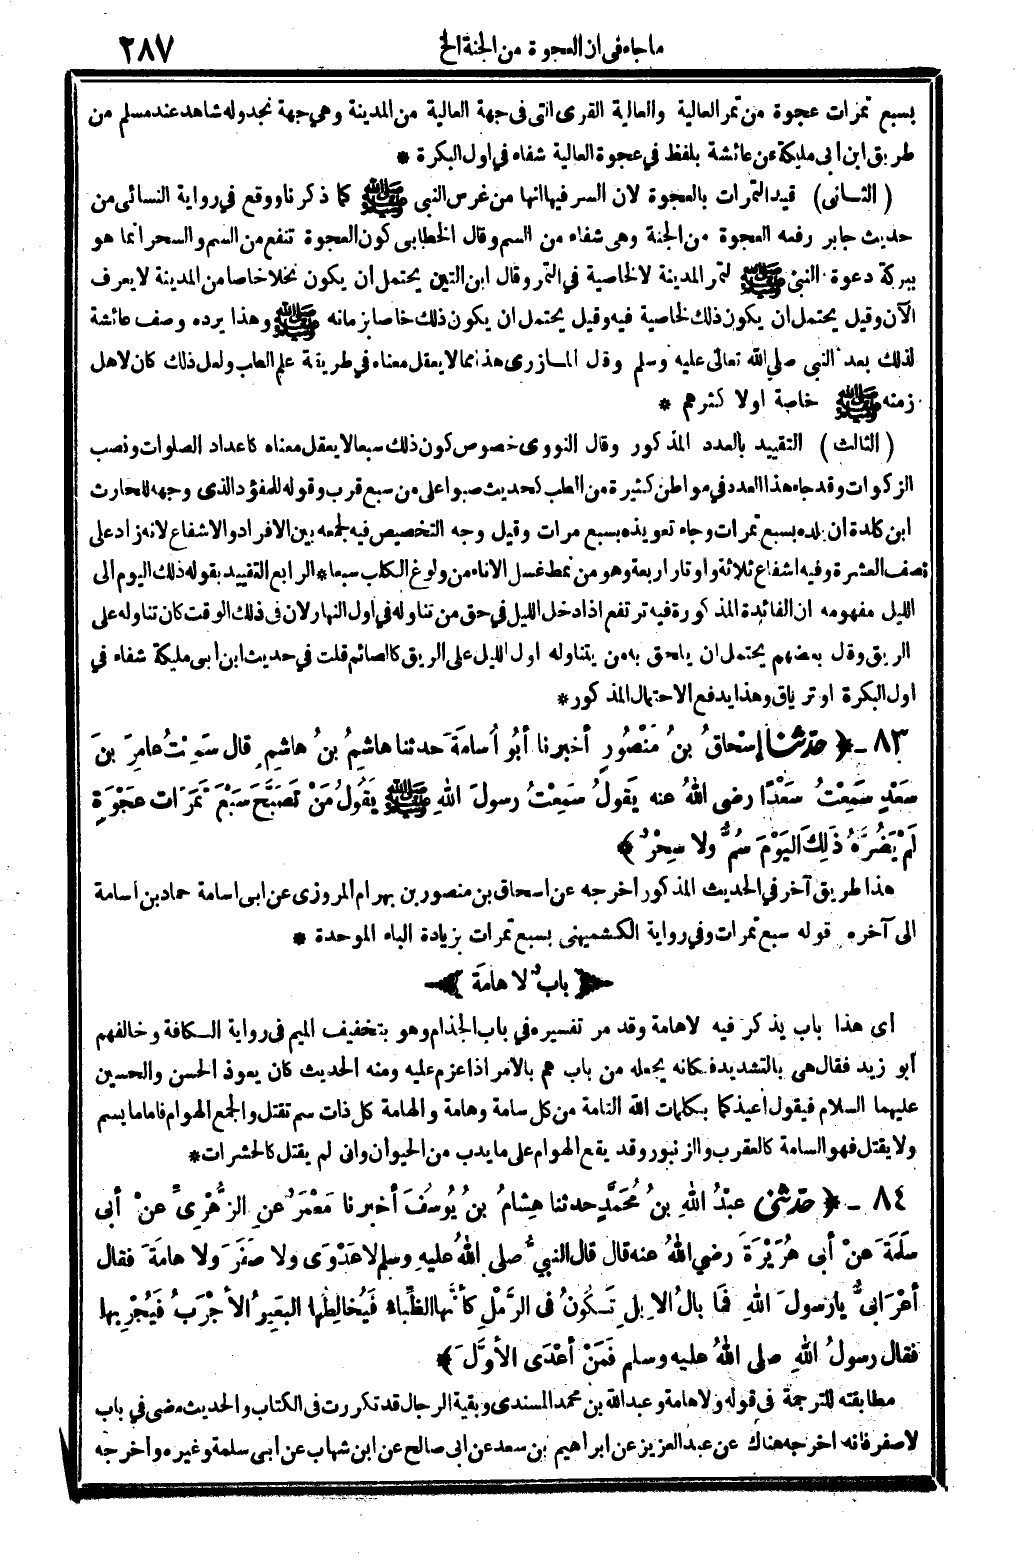 ما جاء في ان العجوة من الجنة الخ ٢٨٧
بسبع تمرات عجوة من تمر العالية والعالية القرى التى فى جهة العالية من المدينة وهي جهة نجد وله شاهد عند مسلم من
طريق ابن ابى مليكة عن عائشة بلفظ في عجوة العالية شفاء في اول البكرة *
( الثانى ) قيد التمرات بالعجوة لان السر فيها انها من غرس النبى ﷺ كما ذكرنا ووقع في رواية النسائى من
حديث جابر رفعه العجوة من الجنة وهى شفاء من السم وقال الخطابى كون العجوة تنفع من السم والسحر انما هو
ببركة دعوة النبى ﷺ لتمر المدينة لا لخاصية في التمر وقال ابن التين يحتمل ان يكون نخلا خاصا من المدينة لا يعرف
الآن وقيل يحتمل ان يكون ذلك لخاصية فيه وقيل يحتمل ان يكون ذلك خاصا بزمانه ﷺ وهذا يرده وصف عائشة
لذلك بعد النبي صلي الله تعالى عليه وسلم وقال المازرى هذا مما لا يعقل معناه في طريقة علم الطب ولعل ذلك كان لاهل
زمنه ﷺ خاصة او لا كثرهم *
( الثالث ) التقييد بالعدد المذكور وقال النووى خصوص كون ذلك سبعا لا يعقل معناه كاعداد الصلوات ونصب
الزكوات وقد جاء هذا العدد في مواطن كثيرة من الطب كحديث صبوا على من سبع قرب وقوله للمفؤد الذى وجهه للحارث
ابن كلدة ان يلده بسبع تمرات وجاء تعويذه بسبع مرات وقيل وجه التخصيص فيه لجمعه بين الافراد والاشفاع لانه زاد على
نصف العشرة وفيه اشفاع ثلاثة واوتار اربعة وهو من نمط غسل الاناء من ولوغ الكلب سبعا * الرابع التقييد بقوله ذلك اليوم الى
الليل مفهومه ان الفائدة المذكورة فيه ترتفع اذا دخل الليل في حق من تناوله في اول النهار لان فى ذلك الوقت كان تناوله على
الريق وقال بعضهم يحتمل ان يلحق به من يتناوله اول الليل على الريق كالصائم قلت في حديث ابن أبى مليكة شفاء في
اول البكرة او ترياق وهذا يدفع الاحتمال المذكور *
٨٣ - ﴿ حدثنا إسْحاقُ بنُ مَنْصُورٍ أخبرنا أبُو أُسامَةَ حدثنا هاشِمُ بنُ هاشِمٍ قال سَمِعْتُ عامِرَ بنَ
سَعْدٍ سَمِعْتُ سَعْدًا رضى اللهُ عنه يَقُولُ سَمِعْتُ رسولَ اللهِ ﷺ يَقُولُ مَنْ تَصَبَّحَ سَبْعَ تَمَرَات عَجْوَةٍ
لَمْ يَضُرَّهُ ذَلِكَ اليَوْمَ سُمٌّ ولا سِحْرٌ ﴾
هذا طريق آخر في الحديث المذكور أخرجه عن اسحاق بن منصور بن بهرام المروزى عن ابى اسامة حماد بن اسامة
الى آخره قوله سبع تمرات وفي رواية الكشميهنى بسبع تمرات بزيادة الباء الموحدة *
﴿ بابٌ لا هامَةَ ﴾
اى هذا باب يذكر فيه لا هامة وقد مر تفسيره في باب الجذام وهو بتخفيف الميم فى رواية الكافة وخالفهم
أبو زيد فقال هى بالتشديد فكانه يجعله من باب هم بالامر اذا عزم عليه ومنه الحديث كان يعوذ الحسن والحسين
عليهما السلام فيقول أعيذكما بكلمات الله التامة من كل سامة وهامة والهامة كل ذات سم تقتل والجمع الهوام فاما ما يسم
ولا يقتل فهو السامة كالعقرب والزنبور وقد يقع الهوام على ما يدب من الحيوان وان لم يقتل كالحشرات *
٨٤ - ﴿ حدثنى عبْدُ اللهِ بنُ مُحَمَّدٍ حدثنا هِشامُ بنُ يُوسُفَ أخبرنا مَعْمَرٌ عنِ الزُّهْرِىِّ عنْ أبى
سَلَمَةَ عنْ أبى هُرَيْرَةَ رضي اللهُ عنه قال قال النبيُّ صلى اللهُ عليه وسلم لا عَدْوَى ولا صَفَرَ ولا هامَةَ فقال
أعْرَابىٌّ يا رسولَ اللهِ فَما بالُ الإبِلِ تَكُونُ فى الرَّمْلِ كأنَّها الظِّباءُ فَيُخالِطُها البَعِيرُ الأجْرَبُ فَيُجْرِبُها
فقال رسولُ اللهِ صلى اللهُ عليه وسلم فَمَنْ أعْدَى الأوَّلَ ﴾
مطابقته للترجمة فى قوله ولا هامة وعبد الله بن محمد المسندى وبقية الرجال قد تكررت فى الكتاب والحديث مضى في باب
لا صفر فانه اخرجه هناك عن عبد العزيز عن ابراهيم بن سعد عن ابى صالح عن ابن شهاب عن ابى سلمة وغيره واخرجه